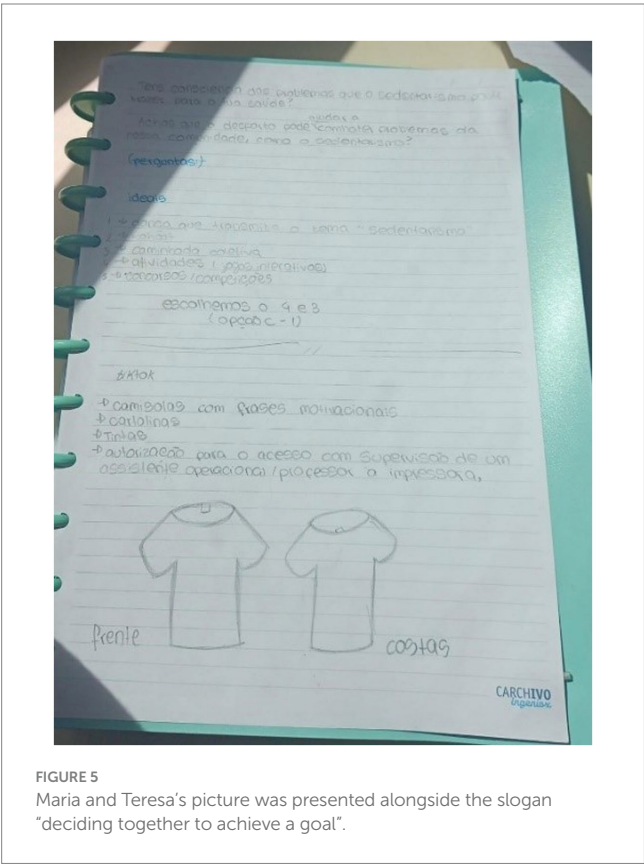 Tens consciência dos problemas que o sedentarismo pode
trazer para a tua saúde?
ajudar a
Achas que o desporto pode combater problemas da
nossa comunidade, como o sedentarismo?
(perguntas:)
ideais
1 → dança que transmita o tema "sedentarismo"
2 →
3 → caminhada coletiva
→ atividades (jogos interativos)
→ concursos/competições
escolhemos o 4 e 3
(opção c - 1)
tiktok
→ camisolas com frases motivacionais
→ cartolinas
→ Tintas
→ autorização para o acesso com supervisão de um
assistente operacional/processor a impressora.
frente
costas
CARCHIVO
Ingeniox
FIGURE 5
Maria and Teresa's picture was presented alongside the slogan
"deciding together to achieve a goal".